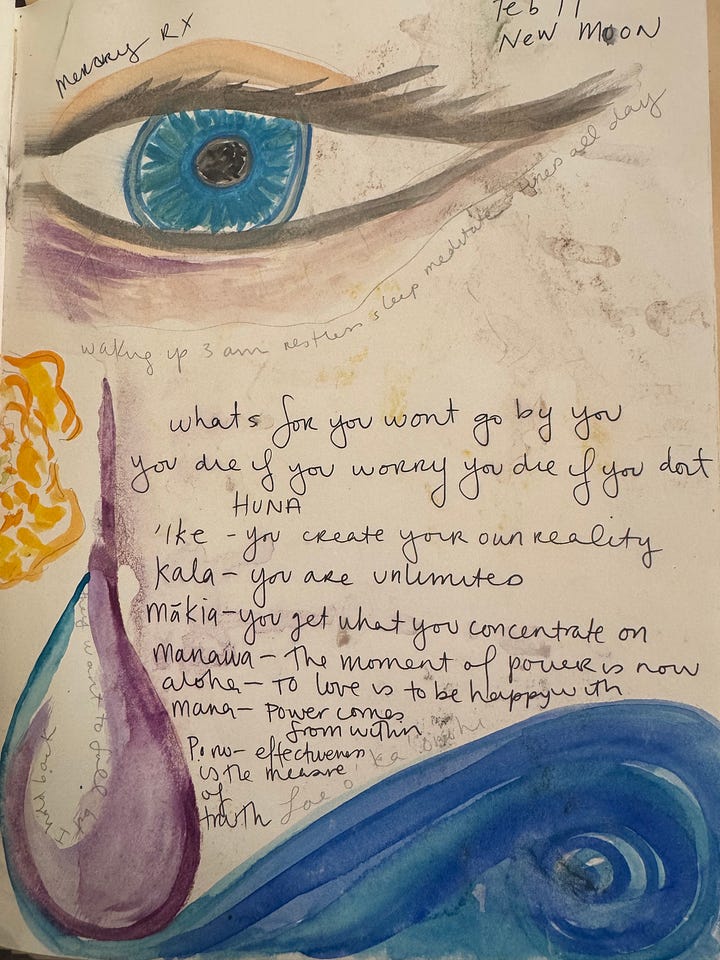 Feb 11
New Moon
Mercury RX
waking up 3 am restless sleep meditate tires all day
whats for you wont go by you
you die if you worry you die if you dont
HUNA
'Ike - you create your own reality
Kala - you are unlimited
mākia - you get what you concentrate on
manawa - The moment of power is now
aloha - To love is to be happy with
mana - power comes
from within
Pono - effectiveness
is the measure
of
truth
want to fall